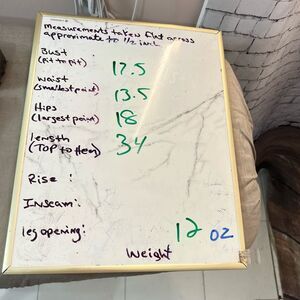 Measurements taken flat across
approximate to 1/2 inch
Bust
(pit to pit) 17.5
waist
(smallest point) 13.5
Hips
(largest point) 18
length
(TOP to Hem) 34
Rise :
Inseam:
leg opening:
12 oz
Weight